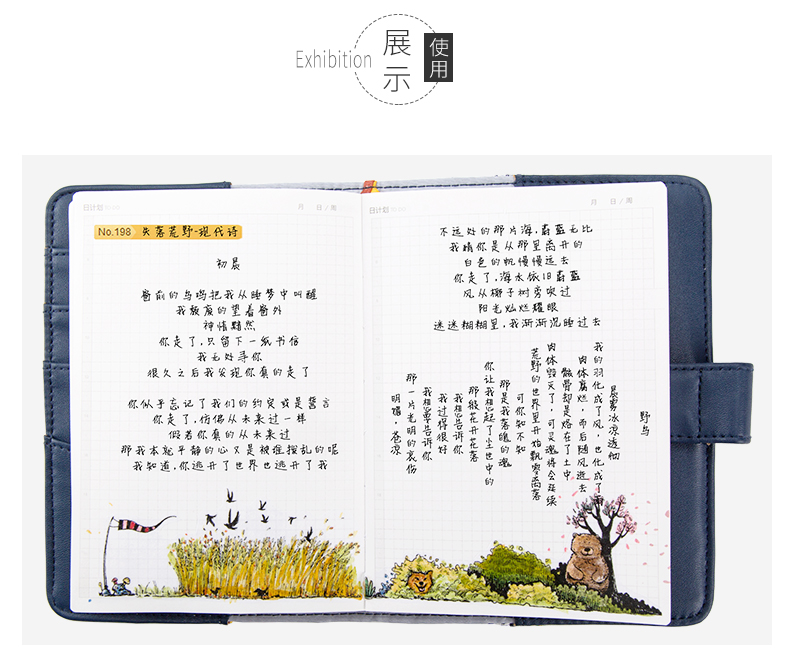 Exhibition
展示
使用
日计划
月 日/周
No.198 失落荒野-现代诗
初晨
窗前的乌鸦把我从睡梦中叫醒
我颓废的望着窗外
神情黯然
你走了,只留下一纸书信
我无处寻你
很久之后我发现你真的走了
你似乎忘记了我们的约定或是誓言
你走了,仿佛从未来过一样
假若你真的从未来过
那我本就平静的心又是被谁搅乱的呢
我知道,你逃开了世界也逃开了我
日计划
月 日/周
不远处的那片海,蔚蓝无比
我猜你是从那里离开的
白色的帆慢慢远去
你走了,海水依旧蔚蓝
风从椰子树旁吹过
阳光灿烂耀眼
迷迷糊糊里,我渐渐沉睡过去
野
晨雾冰凉透彻
我的羽化成了风,也化成了雨
肉体腐烂,而后随风逝去
骸骨却是烙在了土中
肉体毁灭了,可灵魂将会延续
荒野的世界里开始飘零离落
可你知不知
那是我落魄的魂
你让我想起了尘世中的
那般花开花落
我想告诉你
我过得很好
我想要告诉你
那一片光明的哀伤
明媚,苍凉